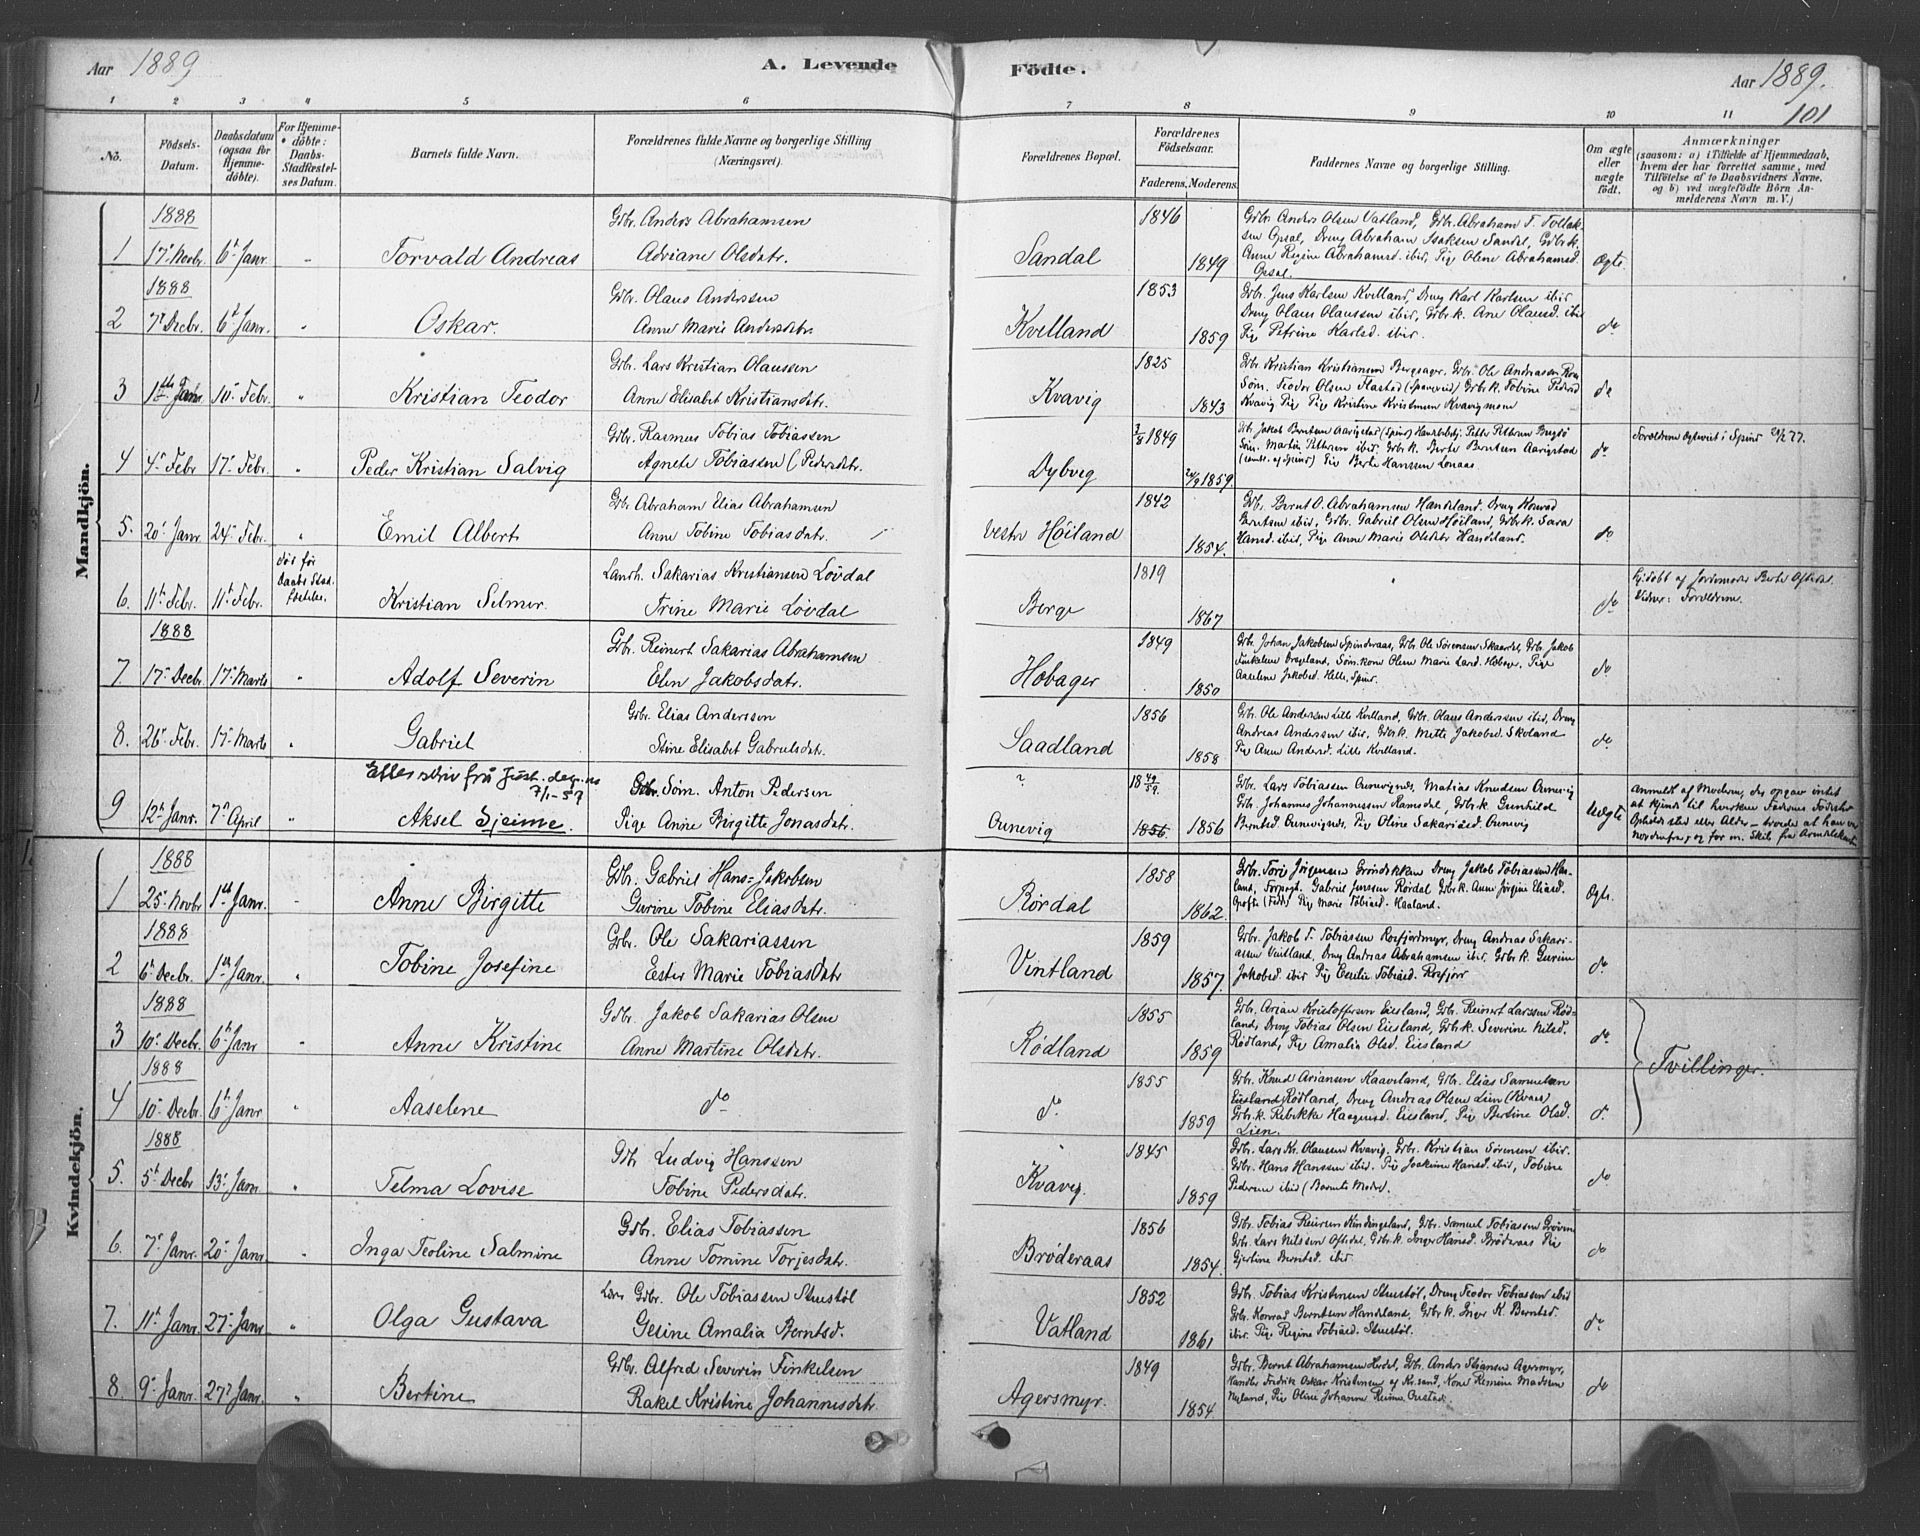 Aar 1889
A. Levende Födte.
Aar 1889.
101
1 2 3 4 5 6 7 8 9 10 11
No.
Födsels-Datum.
Daabsdatum (ogsaa for Hjemme-döbte).
For Hjemme-döbte: Daabs-Stadfæstel-ses Datum.
Barnets fulde Navn.
Forældrenes fulde Navne og borgerlige Stilling (Næringsvei).
Forældrenes Bopæl.
Forældrenes Födselsaar.
Faderens. Moderens.
Faddernes Navne og borgerlige Stilling.
Om ægte eller uægte födt.
Anmærkninger
(saasom: a) i Tilfælde af Hjemmedaab, hvem der har forrettet samme, med Tilföielse af to Daabsvidners Navne, og b) ved uægtefödte Börn An-melderens Navn m. V.)
Mandkjön.
1888
1 17. Novbr. 6t Janr. „ Torvald Andreas
Gbr. Anders Abrahamsen
Adriane Olsdatr.
Sandal 1846 1849
Gbr. Anders Olsen Vatland, Gbr. Abraham T. Tollak-
sen Opsal, Dreng Abraham Isaksen Sandal, Gbrk.
Anne Regine Abrahamsd. ibid, Pige Oline Abrahamsd.
Opsal.
Ægte.
1888
2 7. Decbr. 6t Janr. „ Oskar.
Gbr. Olaus Anderssen
Anne Marie Andersdatr.
Kvelland 1853 1859
Gbr. Jens Karlsen Kvelland, Dreng Karl Karlsen ibid.
Dreng Olaus Olaussen ibid, Gbrk. Ane Olausd. ibid
Pige Petrine Karlsd. ibid.
do
3 1ste Janr. 10. Febr. „ Kristian Teodor
Gbr. Lars Kristian Olaussen
Anne Elisabet Kristiansdatr.
Kvavig 1825 1843
Gbr. Kristian Kristiansen Bergsager, Gbr. Ole Andreassen
Søm. Teodor Olsen Flastad (Spangereid) Gbrk. Tobine Pedersd
Kvavig Pige Kristine Kristensen Kvavigmoen
do
4 4. Febr 17. Febr. „ Peder Kristian Salvig
Gbr. Rasmus Tobias Tobiassen
Agnete Tobiassen (Pedersdatr.
Dybvig 1849 1859.
Gbr. Jakob Berntsen Aarigstad (Spind)
Berte Berntsen Aarigstad
Pige Berte Hanssen Lonaas
do
Forældrene Ægteviet i Spind 77.
5. 20. Janr 24. Febr. „ Emil Albert
Gbr. Abraham Elias Abrahamsen
Anne Tobine Tobiasdatr.
Vestr Høiland 1842 1854.
Gbr. Bernt O. Abrahamsen Handeland. Dreng Konrad
Berntsen ibid, Gbr. Gabriel Olsen Høiland, Gbrk. Sara
Hansd. ibid, Pige Anne Marie Olsdatr Handeland.
do
6. 11t Febr. 11t Febr. død før Daabs Stad-fæstelse. Kristian Selmer.
Landh. Sakarias Kristiansen Løvdal
Trine Marie Løvdal
Berge 1819 1867
„
do
Hjdøbt af Jordemoder Berte Oftedal.
Vidner: Forældrene.
1888
7 17. Decbr. 17. Marts „ Adolf Severin
Gbr. Reinert Sakarias Abrahamsen
Elen Jakobsdatr.
Høbager 1849 1850
Gbr. Johan Jakobsen Spinderaas, Gbr. Ole Sørensen Skaardal, Gbr. Jakob
Finkelsen Drageland, Søm. kone Olene Marie Land. Høbager, Pige
Aaselene Jakobsd. Helle, Spind.
do
8. 26. Febr. 17. Marts „ Gabriel
Gbr. Elias Anderssen
Stine Elisabet Gabrielsdatr.
Saadland 1856 1858
Gbr. Ole Andersen Lille Kvelland, Gbr. Olaus Anderssen ibid, Dreng
Andreas Anderssen ibid, Gbrk. Mette Jakobsd. Skoland
Pige Anne Andersd. Lille Kvelland.
do
Efter skriv fra Just. dep. av
7/1-57
9 12t Janr. 7. April „ Aksel Sjeime.
Gbr. Søm. Anton Pedersen
Pige Anne Birgitte Jonasdatr.
?
Ounevig 1856 1856
Gbr. Lars Tobiassen Ounevignes, Matias Knudsen Ounevig
Gbr. Johannes Johannessen Ramsdal, Gbrk. Gunhilde
Berntsd Ounevignes, Pige Oline Sakariasd. Ounevig
Uægte
Anmeldt af Moderen, der opgav intet
at kjende til hverken Faderens Fødested
Opholdssted eller Alder – troede at han var
nordenfra, og for m. Skib fra Arendalskant
Kvindekjön.
1888
1 25. Novbr 1ste Janr. „ Anne Birgitte
Gbr. Gabriel Hans=Jakobsen
Gurine Tobine Eliasdatr.
Rørdal 1858 1862.
Gbr. Toris Jørgensen Grøndokken Dreng Jakob Tobiassen Haa-
land, Forpagt. Gabriel Jenssen Rørdal Gbrk. Anne Jørgine Eliasd.
(Fedd) Pige Marie Tobiasd. Haaland.
Ægte.
1888
2 6t Decbr. 1ste Janr. „ Tobine Josefine
Gbr. Ole Sakariassen
Ester Marie Tobiasdatr
Vintland 1859 1857.
Gbr. Jakob T. Tobiassen Rosfjordmyr, Dreng Andreas Sakari-
assen Vintland, Dreng Andreas Abrahamsen ibid, Gbrk. Gurine
Jakobsd ibid Pige Cecilie Tobiasd. Rosfjord
do
1888
3 10. Decbr. 6t Janr „ Anne Kristine
Gdbr. Jakob Sakarias Olsen
Anne Martine Olsdatr.
Rødland 1855 1859
Gbr. Arian Kristoffersen Eiesland, Gbr. Reinert Larssen Rød-
land, Dreng Tobias Olsen Eiesland, Gbrk. Severine Nilsd.
Rødland, Pige Amalia Olsd. Eiesland
do
Tvillinger.
1888
4 10. Decbr 6t Janr „ Aaselene
do
do. 1855 1859
Gbr. Knud Ariansen Kaaveland, Gbr. Elias Samuelsen
Eiesland Rødland, Dreng Andreas Olsen Lien (Kvaas)
Gbrk. Rebekke Haagensd. Eiesland, Pige Bertine Olsd.
Lien.
do
1888
5. 5t Decbr 13. Janr. „ Telma Lovise
Gbr Ludvig Hanssen
Tobine Pedersdatr.
Kvavig. 1845 1859
Gbr. Lars Kr. Olaussen Kvavig, Gbr. Kristian Sørensen ibid.
Gbr. Hans Hanssen ibid. Pige Joakime Hansd. ibid, Tobine
Pedersen ibid (Barnets Moder).
do
6. 7. Janr. 20. Janr. „ Inga Teoline Salmine
Gdbr. Elias Tobiassen
Anne Tomine Torjesdatr.
Brøderaas 1856 1854.
Gbr. Tobias Reiersen Kindingeland, Gbr. Samuel Tobiassen
Gbr. Lars Nilssen Oftedal, Gbrk. Inger Hansd. Brøderaas Pige
Gjertine Berntsd. ibid.
do
7. 11t Janr. 27. Janr „ Olga Gustava
Gbr. Ole Tobiassen Stuestøl
Gesine Amalia Berntsd.
Vatland 1852 1861
Gbr. Tobias Kristensen Stuestøl, Dreng Teodor Tobiassen ibid
Gbr. Konrad Berntsen Handeland, Gbrk. Inger K. Berntsd.
ibid. Pige Regine Tobiasd. Stuestøl.
do
8. 9. Janr. 27. Janr. „ Bertine
Gbr. Alfred Severin Finkelsen
Rakel Kristine Johannesdatr.
Agersmyr. 1849 1854
Gbr. Bernt Abrahamsen Hesdal, Gbr. Anders Stiansen Agersmyr,
Handler Fredrik Oskar Kristensen af Kr.sand, Kone Remine Madssen
Nyland, Pige Oline Johanne Reime Oustad.
do